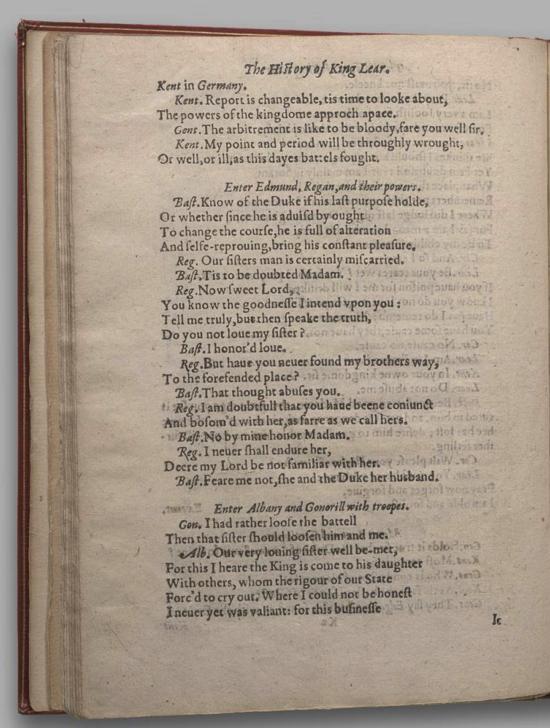 The Hiſtory of King Lear.
Kent in Germany.
Kent. Report is changeable, tis time to looke about,
The powers of the kingdome approch apace.
Gent. The arbitrement is like to be bloody, fare you well ſir.
Kent. My point and period will be throughly wrought,
Or well, or ill, as this dayes battels fought.
Enter Edmund, Regan, and their powers.
Baſt. Know of the Duke if his laſt purpoſe holde,
Or whether ſince he is aduiſd by ought
To change the courſe, he is full of alteration
And ſelfe-reprouing, bring his conſtant pleaſure.
Reg. Our ſiſters man is certainly miſcarried.
Baſt. Tis to be doubted Madam.
Reg. Now ſweet Lord,
You know the goodneſſe I intend vpon you:
Tell me truly, but then ſpeake the truth,
Do you not loue my ſiſter?
Baſt. I honor'd loue.
Reg. But haue you neuer found my brothers way,
To the forefended place?
Baſt. That thought abuſes you.
Reg. I am doubtfull that you haue beene coniunct
And boſom'd with her, as farre as we call hers.
Baſt. No by mine honor Madam.
Reg. I neuer ſhall endure her,
Deere my Lord be not familiar with her.
Baſt. Feare me not, ſhe and the Duke her husband.
Enter Albany and Gonorill with troopes.
Gon. I had rather looſe the battell
Then that ſiſter ſhould looſen him and me.
Alb. Our very louing ſiſter well be-met,
For this I heare the King is come to his daughter
With others, whom the rigour of our State
Forc'd to cry out. Where I could not be honeſt
I neuer yet was valiant: for this buſineſſe
It